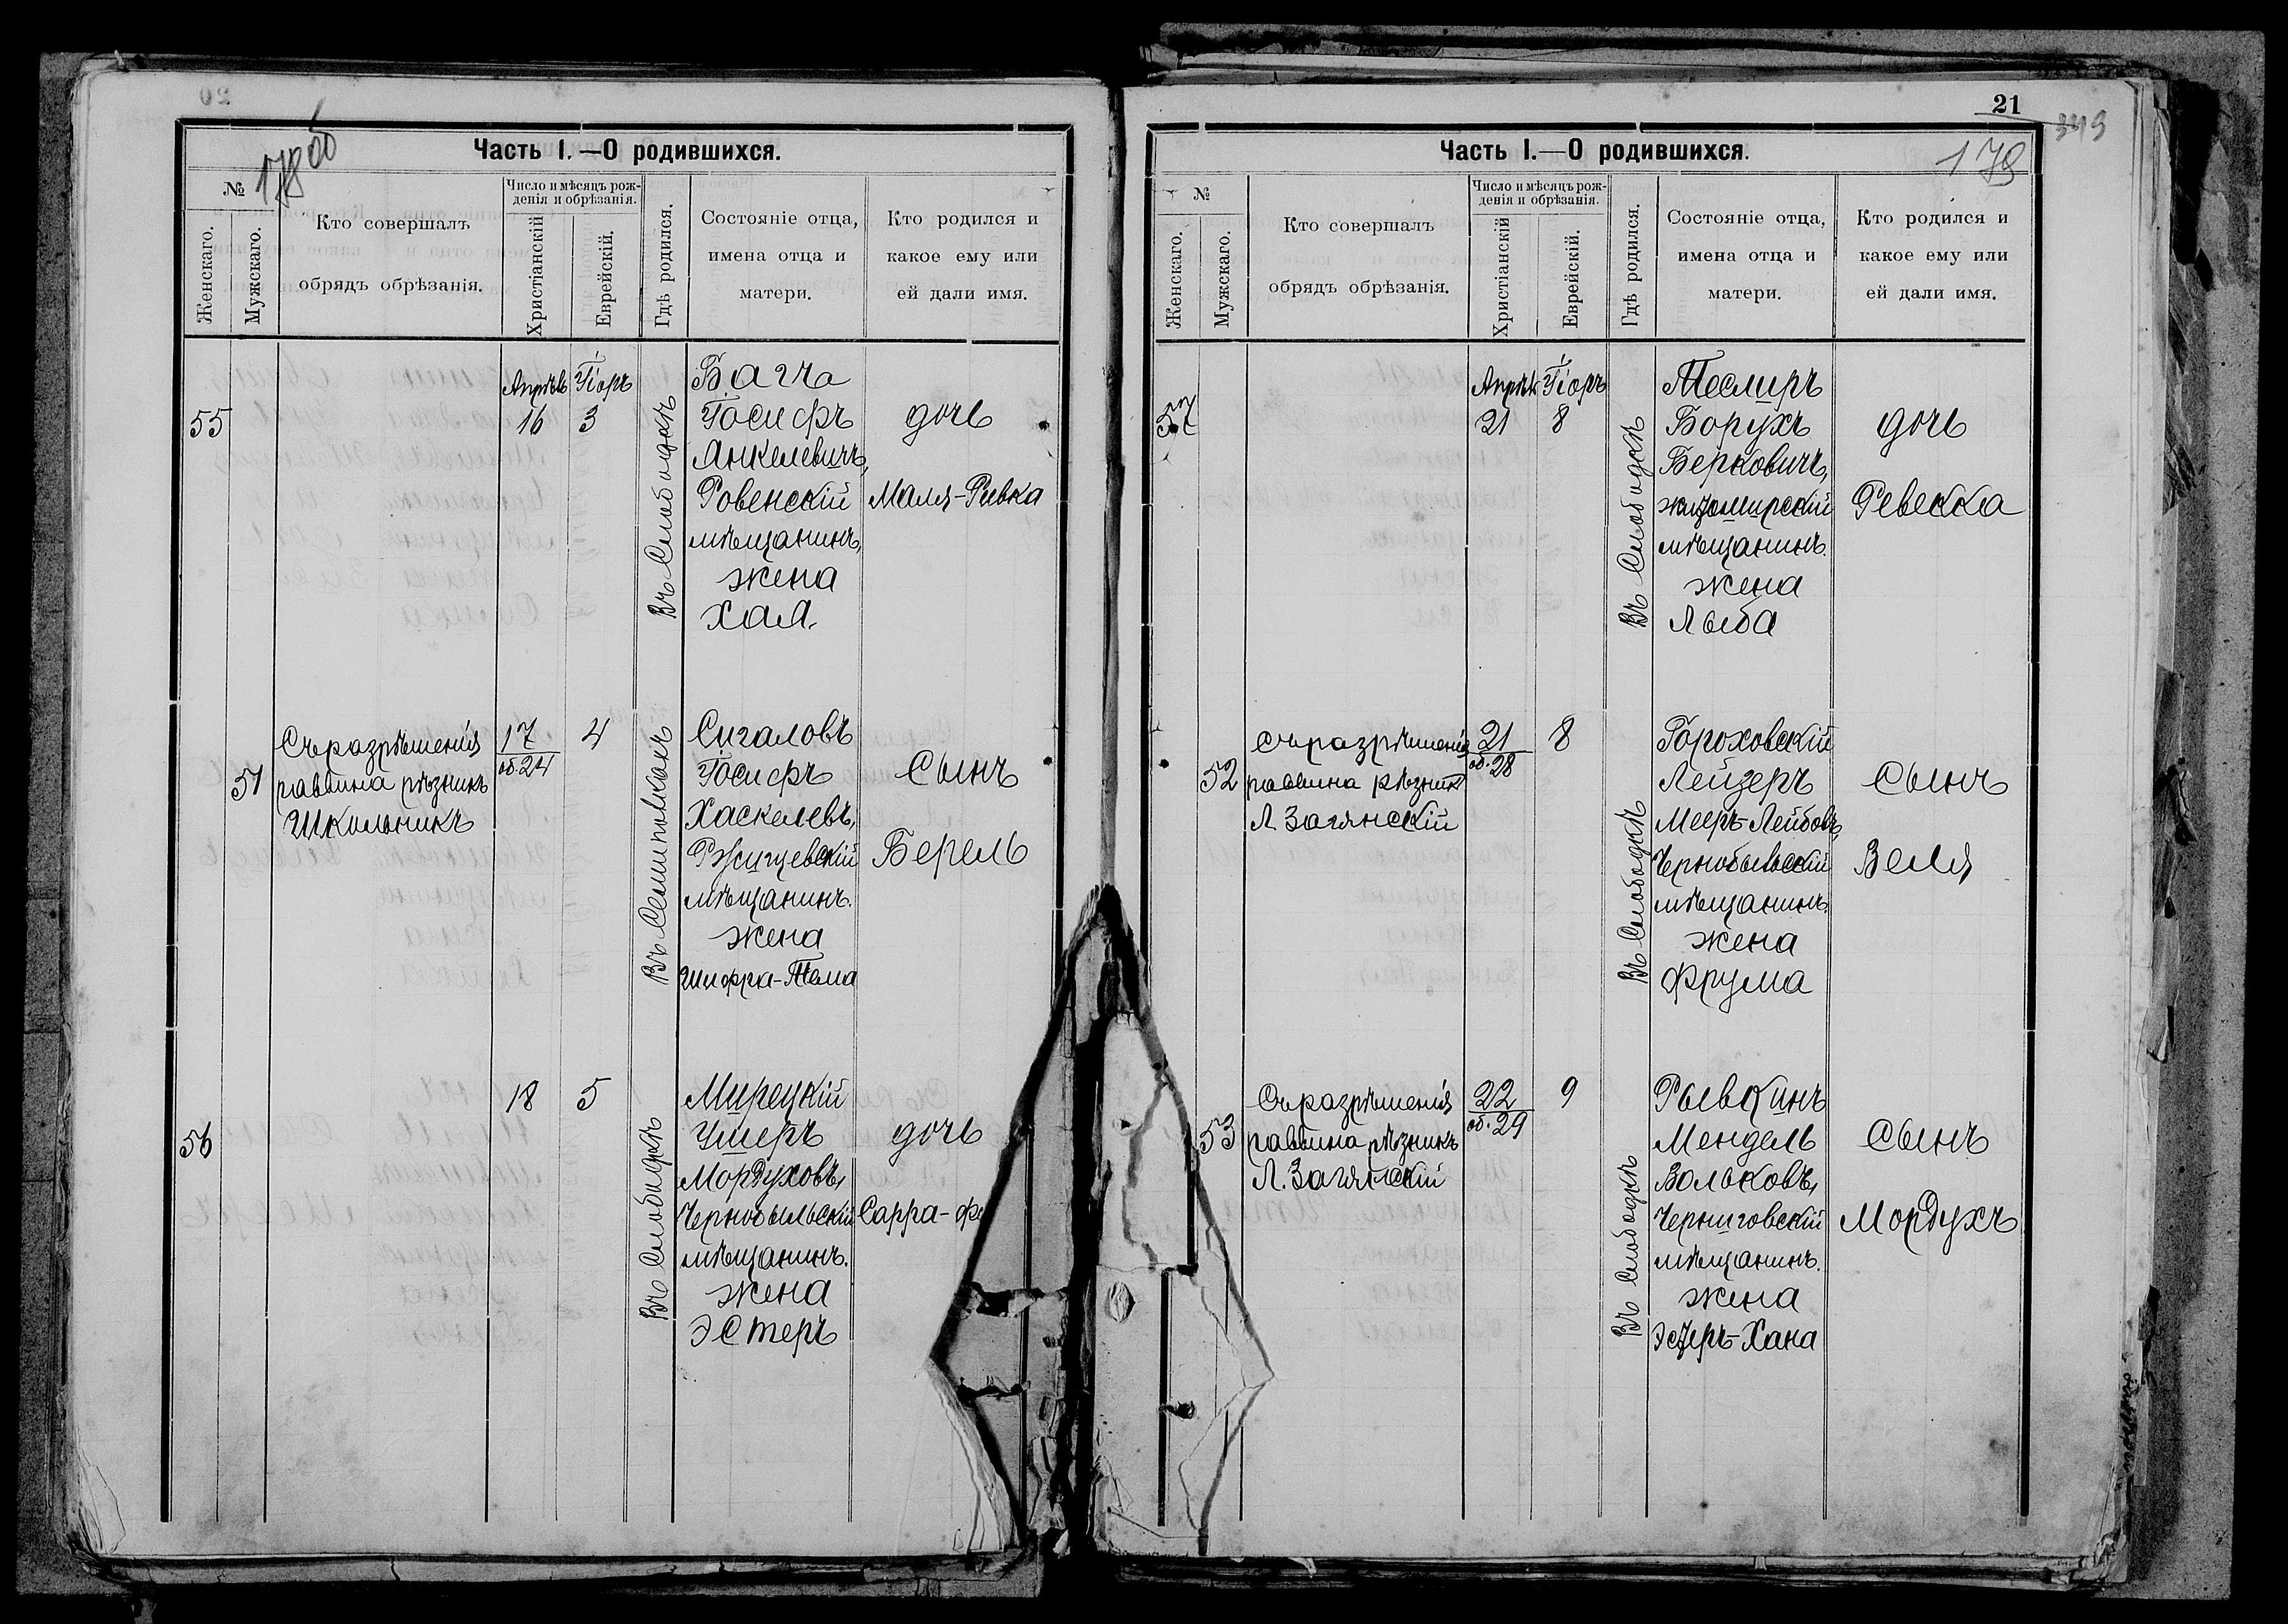 178 об
Часть I.—О родившихся.
№
Женскаго.
Мужскаго.
Кто совершалъ
обрядъ обрѣзанія.
Число и мѣсяцъ рож-
денія и обрѣзанія.
Христіанскій
Еврейскій.
Гдѣ родился.
Состояніе отца,
имена отца и
матери.
Кто родился и
какое ему или
ей дали имя.
55
Апрѣль
16
Ііоръ
3
Въ Слободкѣ
Багча
Іосифъ
Янкелевичъ,
Ровенскій
мѣщанинъ,
жена
Хая.
дочь
Маля-Ривка
51
Съ разрѣшенія
раввина рѣзникъ
Школьникъ
17
об. 24
4
Въ Семиполкахъ
Сигаловъ
Іосифъ
Хаскелевъ,
Ржищевскій
мѣщанинъ.
жена
Шифра-Тема
сынъ
Берель
56
18
5
Въ Слободкѣ
Мирецкій
Ушеръ
Мордуховъ,
Чернобыльскій
мѣщанинъ.
жена
Эстеръ
дочь
Сарра-
21
349
179
Часть I.—О родившихся.
№
Женскаго.
Мужскаго.
Кто совершалъ
обрядъ обрѣзанія.
Число и мѣсяцъ рож-
денія и обрѣзанія.
Христіанскій
Еврейскій.
Гдѣ родился.
Состояніе отца,
имена отца и
матери.
Кто родился и
какое ему или
ей дали имя.
57
Апрѣль
21
Ііоръ
8
Въ Слободкѣ
Теслиръ
Борухъ
Берковичъ,
житомирскій
мѣщанинъ.
жена
Лыба
дочь
Ревекка
52
Съ разрѣшенія
раввина рѣзникъ
Л. Загянскій
21
об. 28
8
Въ Слободкѣ
Гороховскій
Лейзеръ
Мееръ-Лейбовъ,
Чернобыльскій
мѣщанинъ.
жена
Фрума
сынъ
Зеля
53
Съ разрѣшенія
раввина рѣзникъ
Л. Загянскій
22
об. 29
9
Въ Слободкѣ
Рывкинъ
Мендель
Вольковъ,
Черниговскій
мѣщанинъ.
жена
Эстеръ-Хана
сынъ
Мордухъ